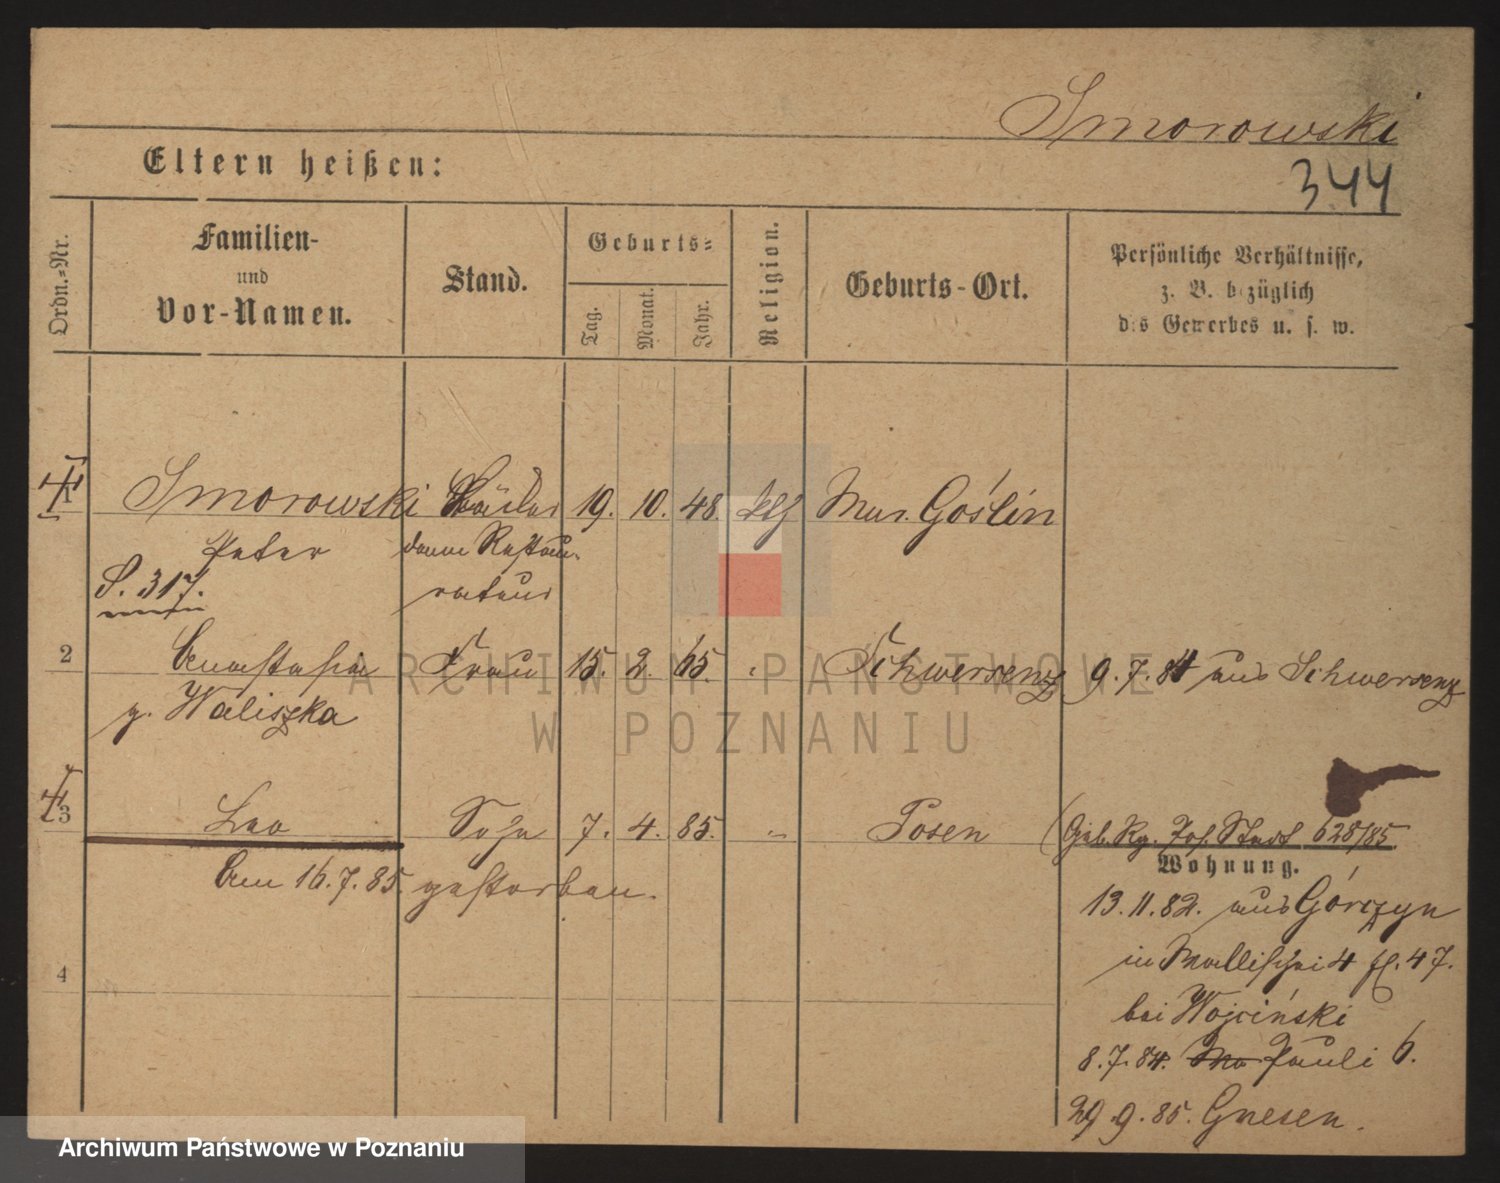 Smorowski
344
Eltern heißen:
Ordn.=Nr.
Familien-
und
Vor-Namen.
Stand.
Geburts=
Tag.
Monat.
Jahr.
Religion.
Geburts-Ort.
Persönliche Verhältnisse,
z. B. bezüglich
des Gewerbes u. s. w.
1 Smorowski 19. 10. 48. Mur. Goślin
Peter dann Restau-
rateur
S. 317.
2 Anastasia Frau 15. 2. 65. Schwersenz 9.7.84 aus Schwersenz
g. Waliszka
3 Leo Sohn 7. 4. 85. " Posen (Geb. Rg. Pos. Stadt 628/85.
Am 16.7.85. gestorben.
Wohnung.
13.11.82. aus Górczyn
in Wallischei 4 fl. 47.
bei Wojciński
4
8.7.84. Pauli 6.
29.9.85. Gnesen.
ARCHIWUM PAŃSTWOWE
W POZNANIU
Archiwum Państwowe w Poznaniu